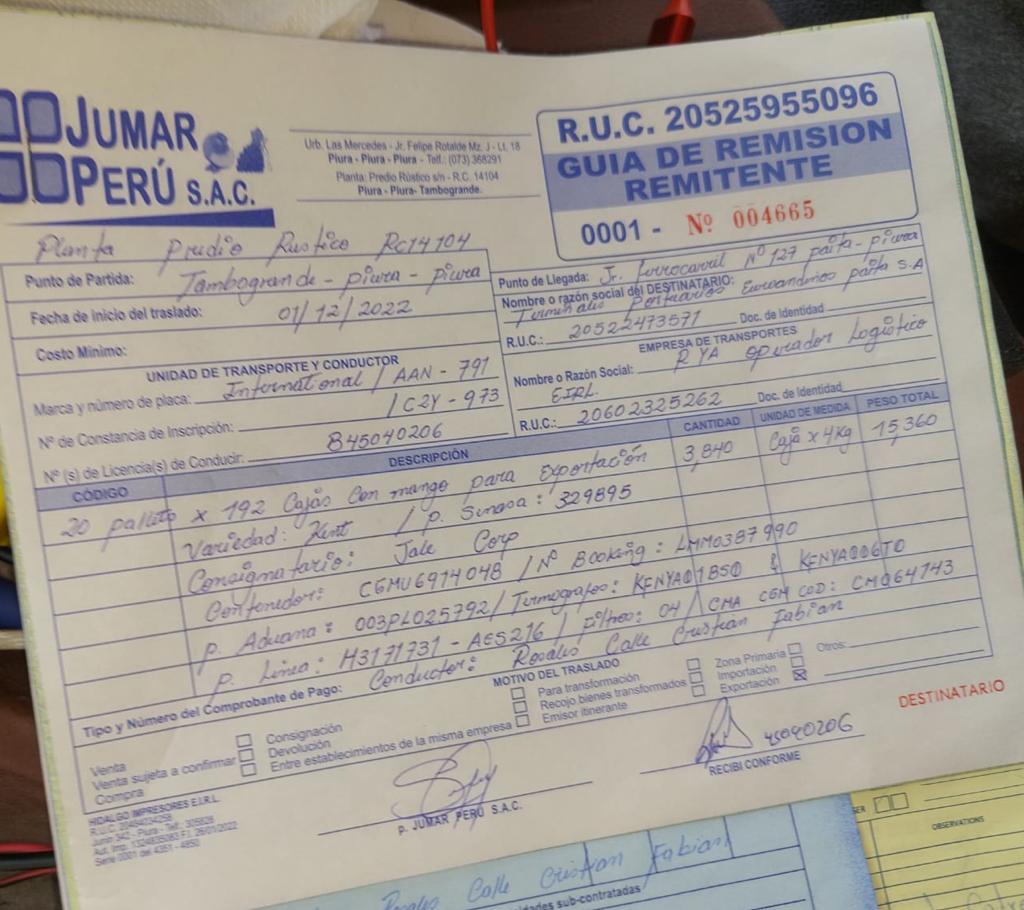 JUMAR
PERÚ S.A.C.
Urb. Las Mercedes - Jr. Felipe Rotalde Mz. J - Lt. 18
Piura - Piura - Piura - Telf.: (073) 368291
Planta: Predio Rústico s/n - R.C. 14104
Piura - Piura- Tambogrande.
R.U.C. 20525955096
GUIA DE REMISION
REMITENTE
0001 - Nº 004665
Planta Predio Rustico RC14104
Punto de Partida: Tambogrande - piura - piura
Fecha de inicio del traslado: 01/12/2022
Costo Mínimo:
Punto de Llegada: Jr. ferrocarril Nº 127 paita - piura
Nombre o razón social del DESTINATARIO:
Terminales Portuarios Euroandinos paita S.A
R.U.C.: 20522473571 Doc. de Identidad
UNIDAD DE TRANSPORTE Y CONDUCTOR
Marca y número de placa: International / AAN - 791
/ C2Y - 973
Nº de Constancia de Inscripción:
Nº (s) de Licencia(s) de Conducir: B45040206
EMPRESA DE TRANSPORTES
Nombre o Razón Social: R YA Operador Logístico
EIRL.
R.U.C.: 20602325262 Doc. de Identidad
CÓDIGO DESCRIPCIÓN CANTIDAD UNIDAD DE MEDIDA PESO TOTAL
20 pallets x 192 Cajas Con mango para Exportación 3,840 Caja x 4Kg 15,360
Variedad: Kent / p. Senasa: 329895
Consignatario: Jale Corp
Contenedor: CGMU6914048 / Nº Booking: LMM0387990
p. Aduana: 003PL025792 / Termografos: KENYA01B50 & KENYA006T0
p. Linea: H3171731 - AES216 / Filtros: 04 / CMA CGM COD: CMO64743
Conductor: Rosales Calle Cristian Fabian
Tipo y Número del Comprobante de Pago:
MOTIVO DEL TRASLADO
Venta
Venta sujeta a confirmar
Compra
Consignación
Devolución
Entre establecimientos de la misma empresa
Para transformación
Recojo bienes transformados
Emisor itinerante
Zona Primaria
Importación
Exportación
Otros:
HIDALGO IMPRESORES E.I.R.L.
Junín 342 - Piura - Telf.: 305828
Aut. Imp. 1324835083 F.I. 26/01/2022
Serie 0001 del 4351 - 4850
p. JUMAR PERÚ S.A.C.
45040206
RECIBI CONFORME
DESTINATARIO
OBSERVATIONS
Rosales Calle Cristian Fabian
sub-contratadas